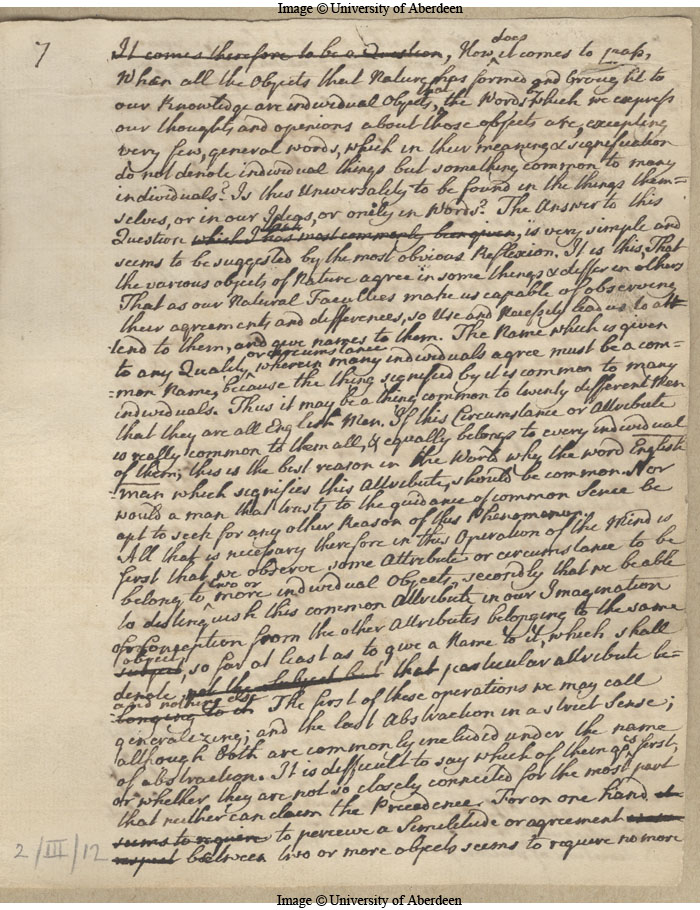 Image © University of Aberdeen
7
It comes therefore to be a Question, How does it comes to pass,
When all the Objects that Nature has formed and brought to
our Knowledge are individual Objects, that the Words which we express
our thoughts and opinions about those objects are, excepting
very few, general words, which in their meaning & signification
do not denote individual things but something common to many
individuals? Is this Universality to be found in the things them=
selves, or in our Ideas, or onely in Words? The Answer to this
Question which I has most commonly been given, is very simple and
seems to be suggested by the most obvious Reflexion. It is this, That
the various objects of Nature agree in some things & differ in others
That as our Natural Faculties make us capable of observing
their agreements and differences, so Use and Necessity lead us to att
tend to them, and give names to them. The Name which is given
to any Quality or circumstance wherein many individuals agree must be a com=
=mon Name, because the thing signified by it is common to many
individuals. Thus it may be a thing common to twenty different Men
that they are all English Men. If this Circumstance or Attribute
is really common to them all, & equally belongs to every individual
of them; this is the best reason in the World why the word English
=man which signifies this Attribute, should be common. Nor
would a man that trusts to the guidance of common Sense be
apt to seek for any other Reason of this Phenomenon.
All that is necessary therefore in this Operation of the Mind is
first that we observe some Attribute or circumstance to be
belong to two or more individual Objects, secondly that we be able
to distinguish this common Attribute in our Imagination
or Conception from the other Attributes belonging to the same
object subject, so far at least as to give a Name to it, which shall
denote not the Subject but that particular attribute be=
and nothing else longing to it The first of these operations we may call
generalizing; and the last Abstraction in a strict Sense;
although both are commonly included under the name
of abstraction. It is difficult to say which of them goes first,
or whether they are not so closely connected for the most part
that neither can claim the Precedence. For on one hand
seems to require to perceive a Similitude or agreement
respect between two or more objects seems to require no more
2/III/12
Image © University of Aberdeen